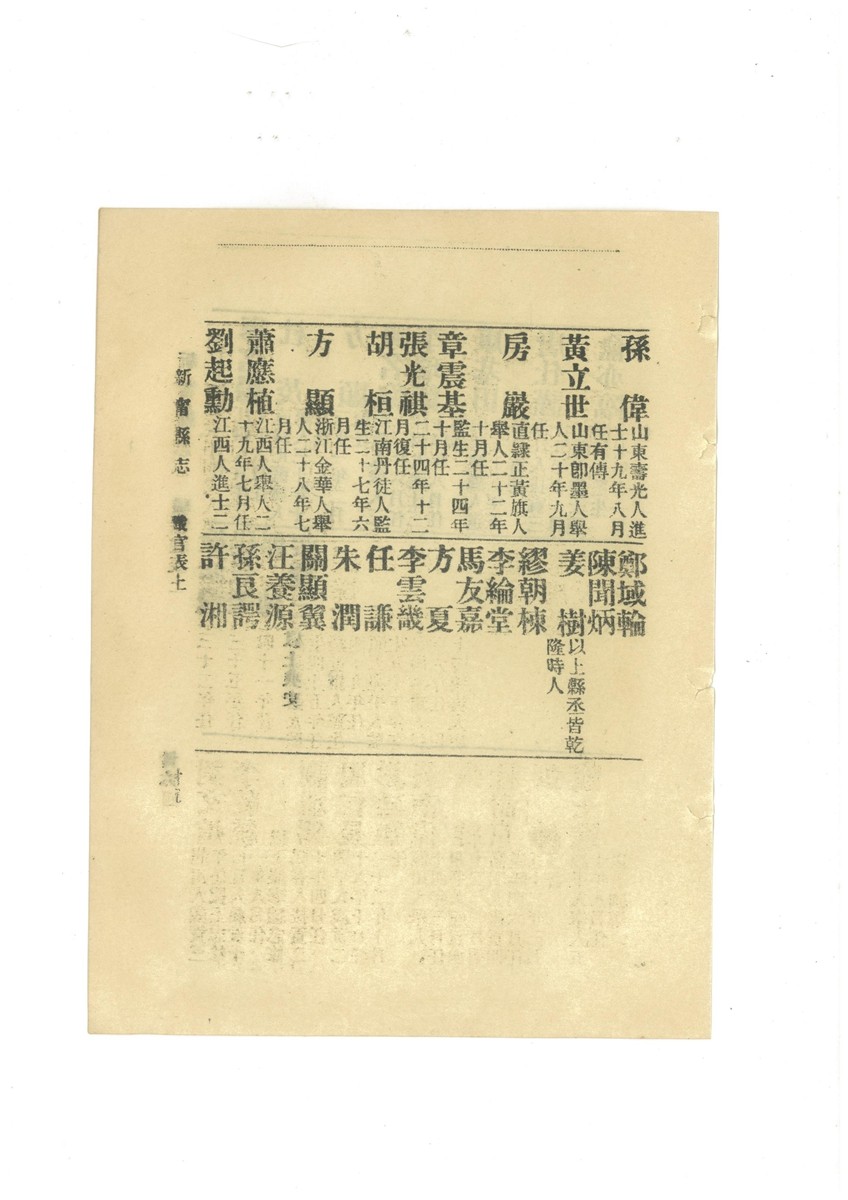 孫偉
山東壽光人進
士十九年八月
任有傳
黃立世
山東卽墨人舉
人二十年九月
任
房巖
直隸正黃旗人
舉人二十二年
十月任
章震基
監生二十四年
十月任
張光祺
二十四年十二
月復任
胡桓
江南丹徒人監
生二十七年六
月任
方顯
浙江金華人舉
人二十八年七
月任
蕭應植
江西人舉人二
十九年七月任
劉起勳
江西人進士二
鄭域輪
陳聞炳
姜樹
以上縣丞皆乾
隆時人
繆朝棟
李綸堂
馬友嘉
方夏
李雲畿
任謙
朱潤
關顯翼
汪養源
孫良諤
許湘
新甯縣志
職官表上